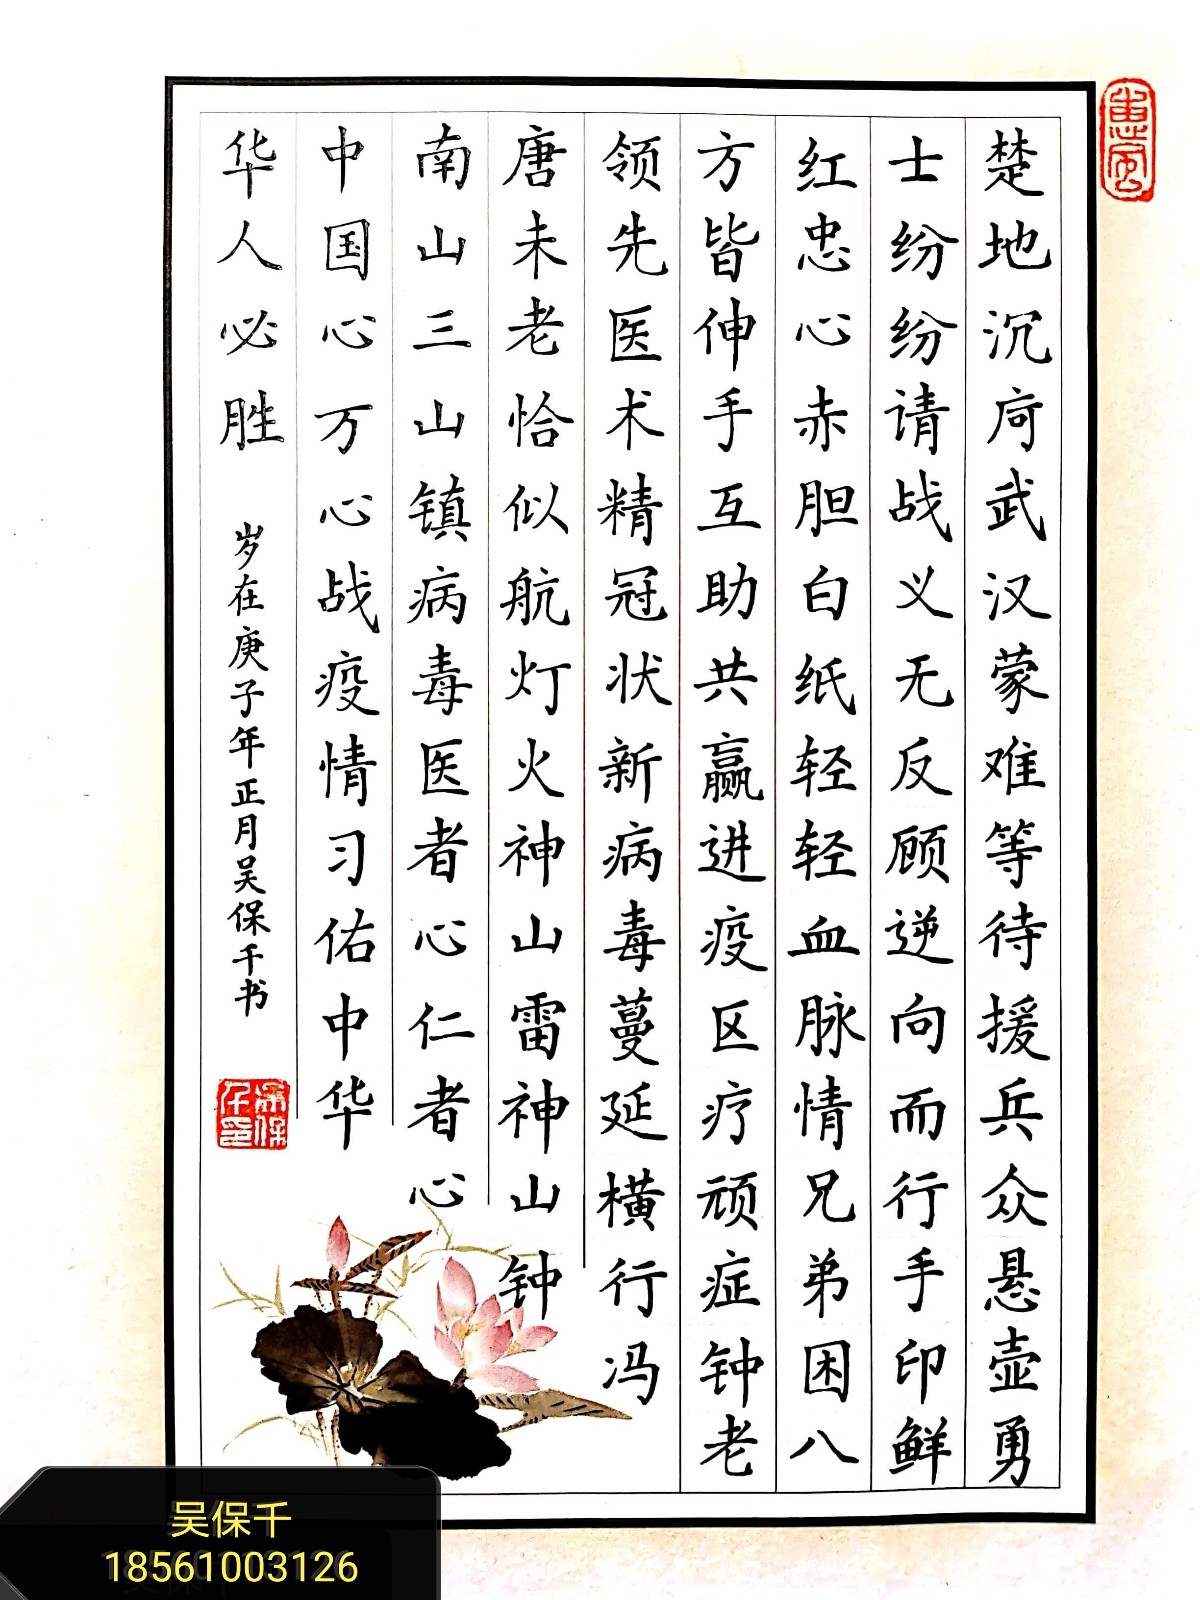 楚地沉疴武汉蒙难等待援兵众悬壶勇
士纷纷请战义无反顾逆向而行手印鲜
红忠心赤胆白纸轻轻血脉情兄弟困八
方皆伸手互助共赢进疫区疗顽症钟老
领先医术精冠状新病毒蔓延横行冯
唐未老恰似航灯火神山雷神山钟
南山三山镇病毒医者心仁者心
中国心万心战疫情习佑中华
华人必胜
岁在庚子年正月吴保千书
吴保千印
吴保千
18561003126